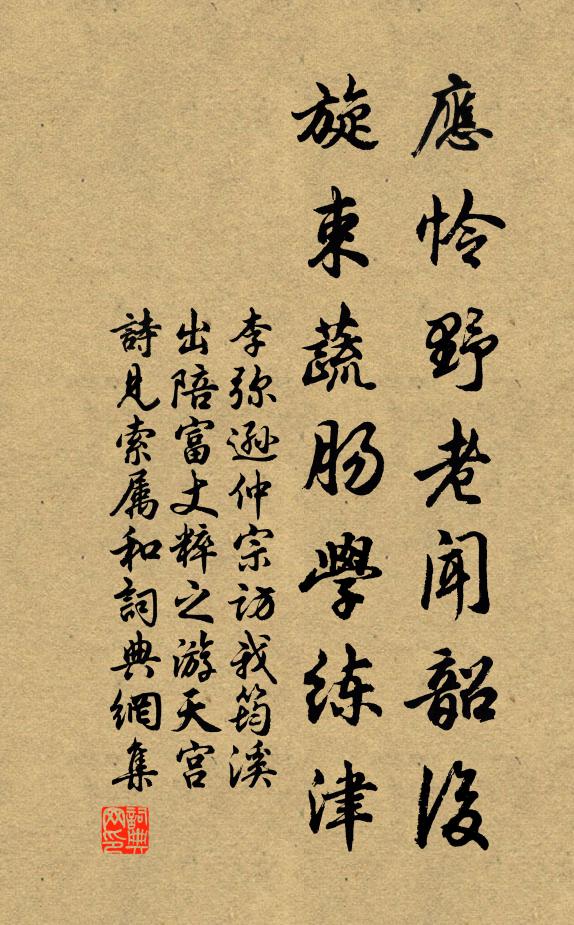 應怜野老聞韶後
旋束蔬肠學练津
李弥遜仲宗訪我筠溪
出陪富丈粹之游天宫
詩見索属和詞典網集
詞典网印